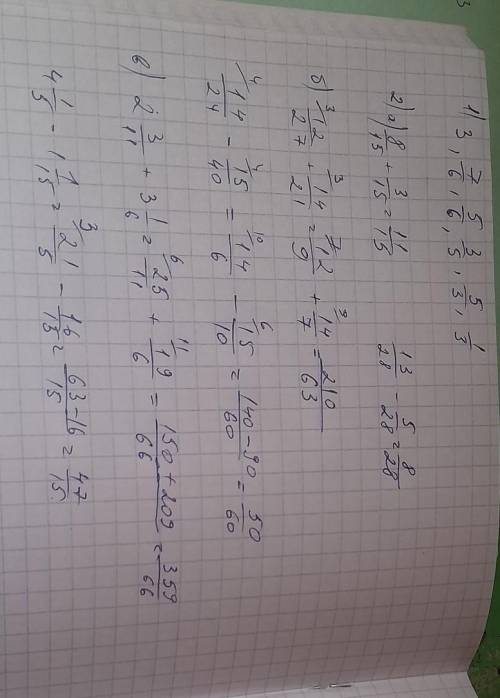 1) 3, 7/6, 5/6, 3/5, 5/3, 1/3
2) а) 8/15 + 3/15 = 11/15   13/28 - 5/28 = 8/28
б) ³⁄12/27 + ³⁄14/21 = ⁷⁄12/9 + ⁹⁄14/7 = 210/63
⁴⁄14/24 - ⁴⁄15/40 = ¹⁰⁄14/6 - ⁶⁄15/10 = (140-90)/60 = 50/60
в) 2 3/11 + 3 1/6 = ⁶⁄25/11 + ¹¹⁄19/6 = (150+209)/66 = 359/66
4 1/5 - 1 1/15 = ³⁄21/5 - 16/15 = (63-16)/15 = 47/15